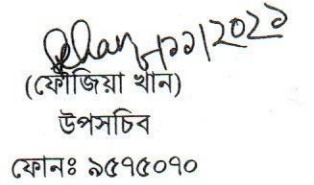 (ফৌজিয়া খান)
উপসচিব
ফোনঃ ৯৫৭৫০৭০